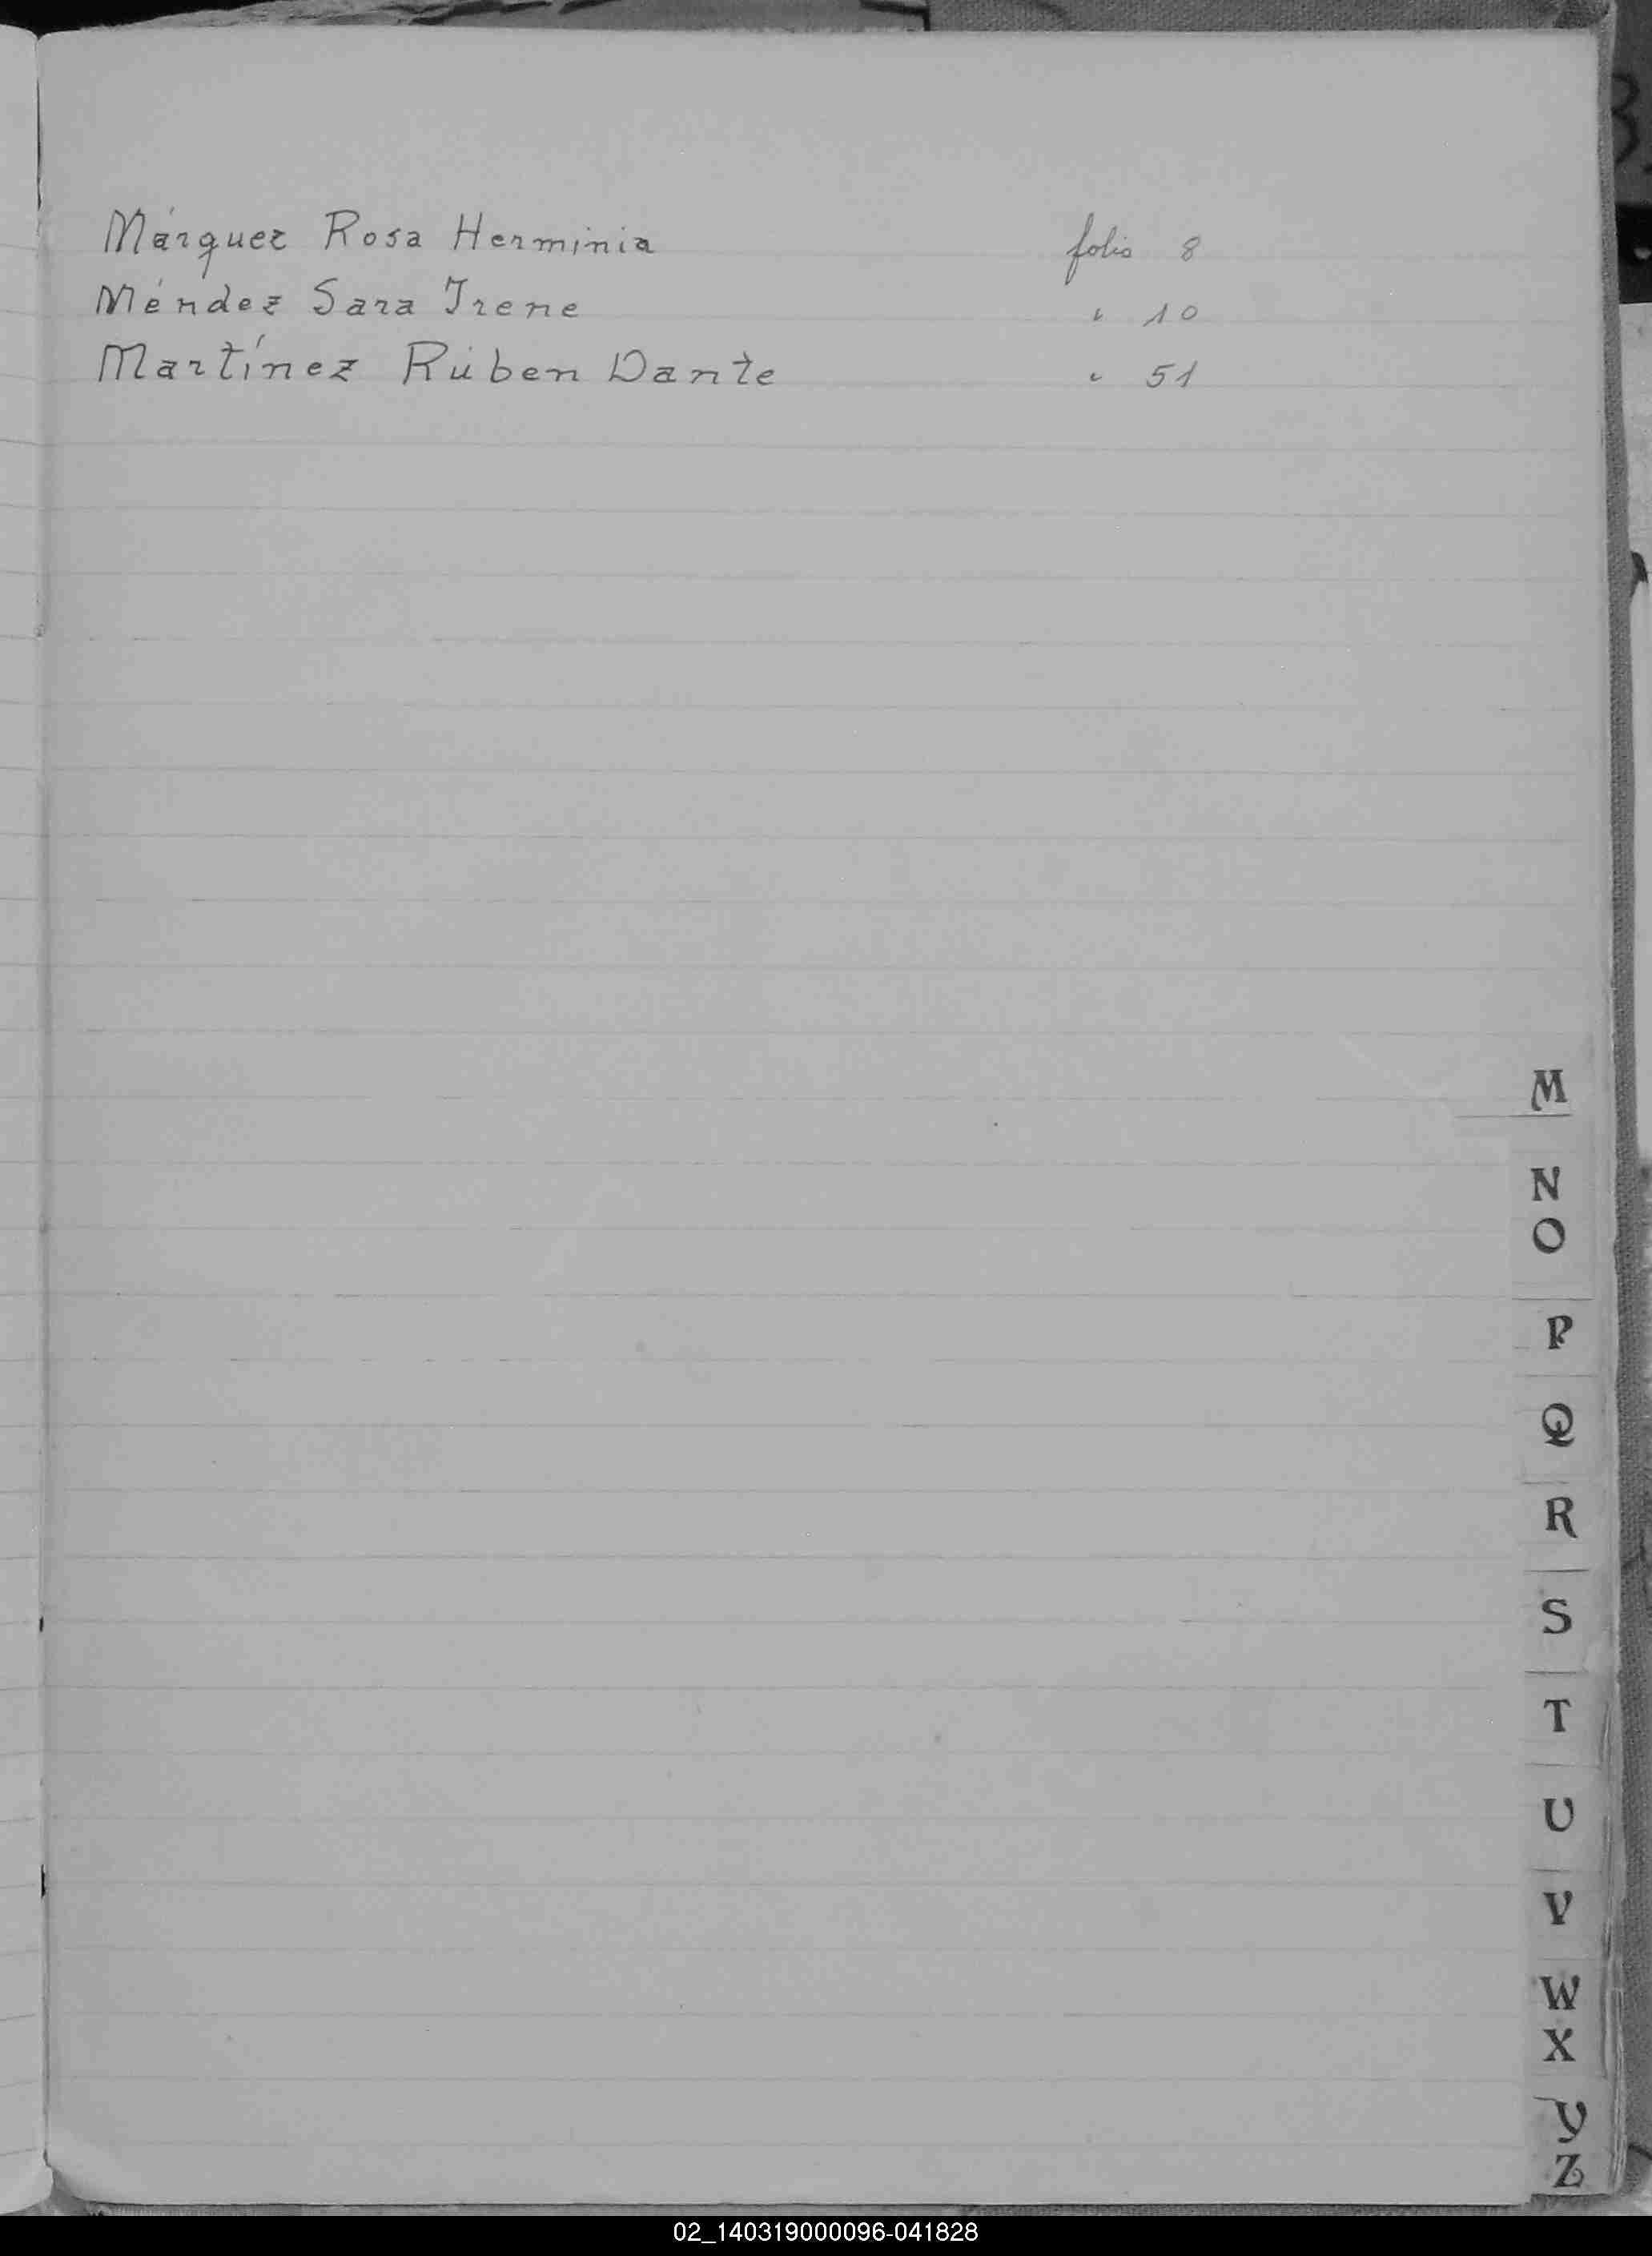 Márquez Rosa Herminia folio 8
Méndez Sara Irene " 10
Martínez Rúben Dante " 51
M
N
O
P
Q
R
S
T
U
V
W
X
Y
Z
02_140319000096-041828